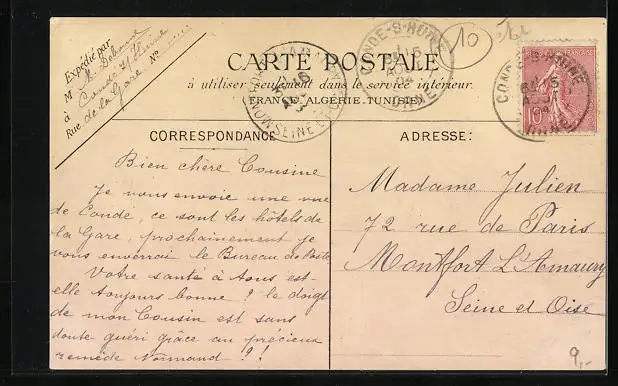 Expédié par
M
à
Rue
N°
Conde s/ Huisne
de la Gare
CARTE POSTALE
à utiliser seulement dans le service intérieur.
(FRANCE, ALGÉRIE, TUNISIE)
CONDE-S-HUISNE
ORNE
CONDE-S-HUISNE
ORNE
10
10
9,-
CORRESPONDANCE
Bien chère Cousine
Je vous envoie une vue
de Condé, ce sont les hôtels de
la Gare, prochainement je
vous enverrai le Bureau de Poste
Votre santé à tous est-
elle toujours bonne? le doigt
de mon Cousin est sans
doute guéri grâce au précieux
remède Normand?!
ADRESSE:
Madame Julien
72 rue de Paris
Montfort L'Amaury
Seine et Oise